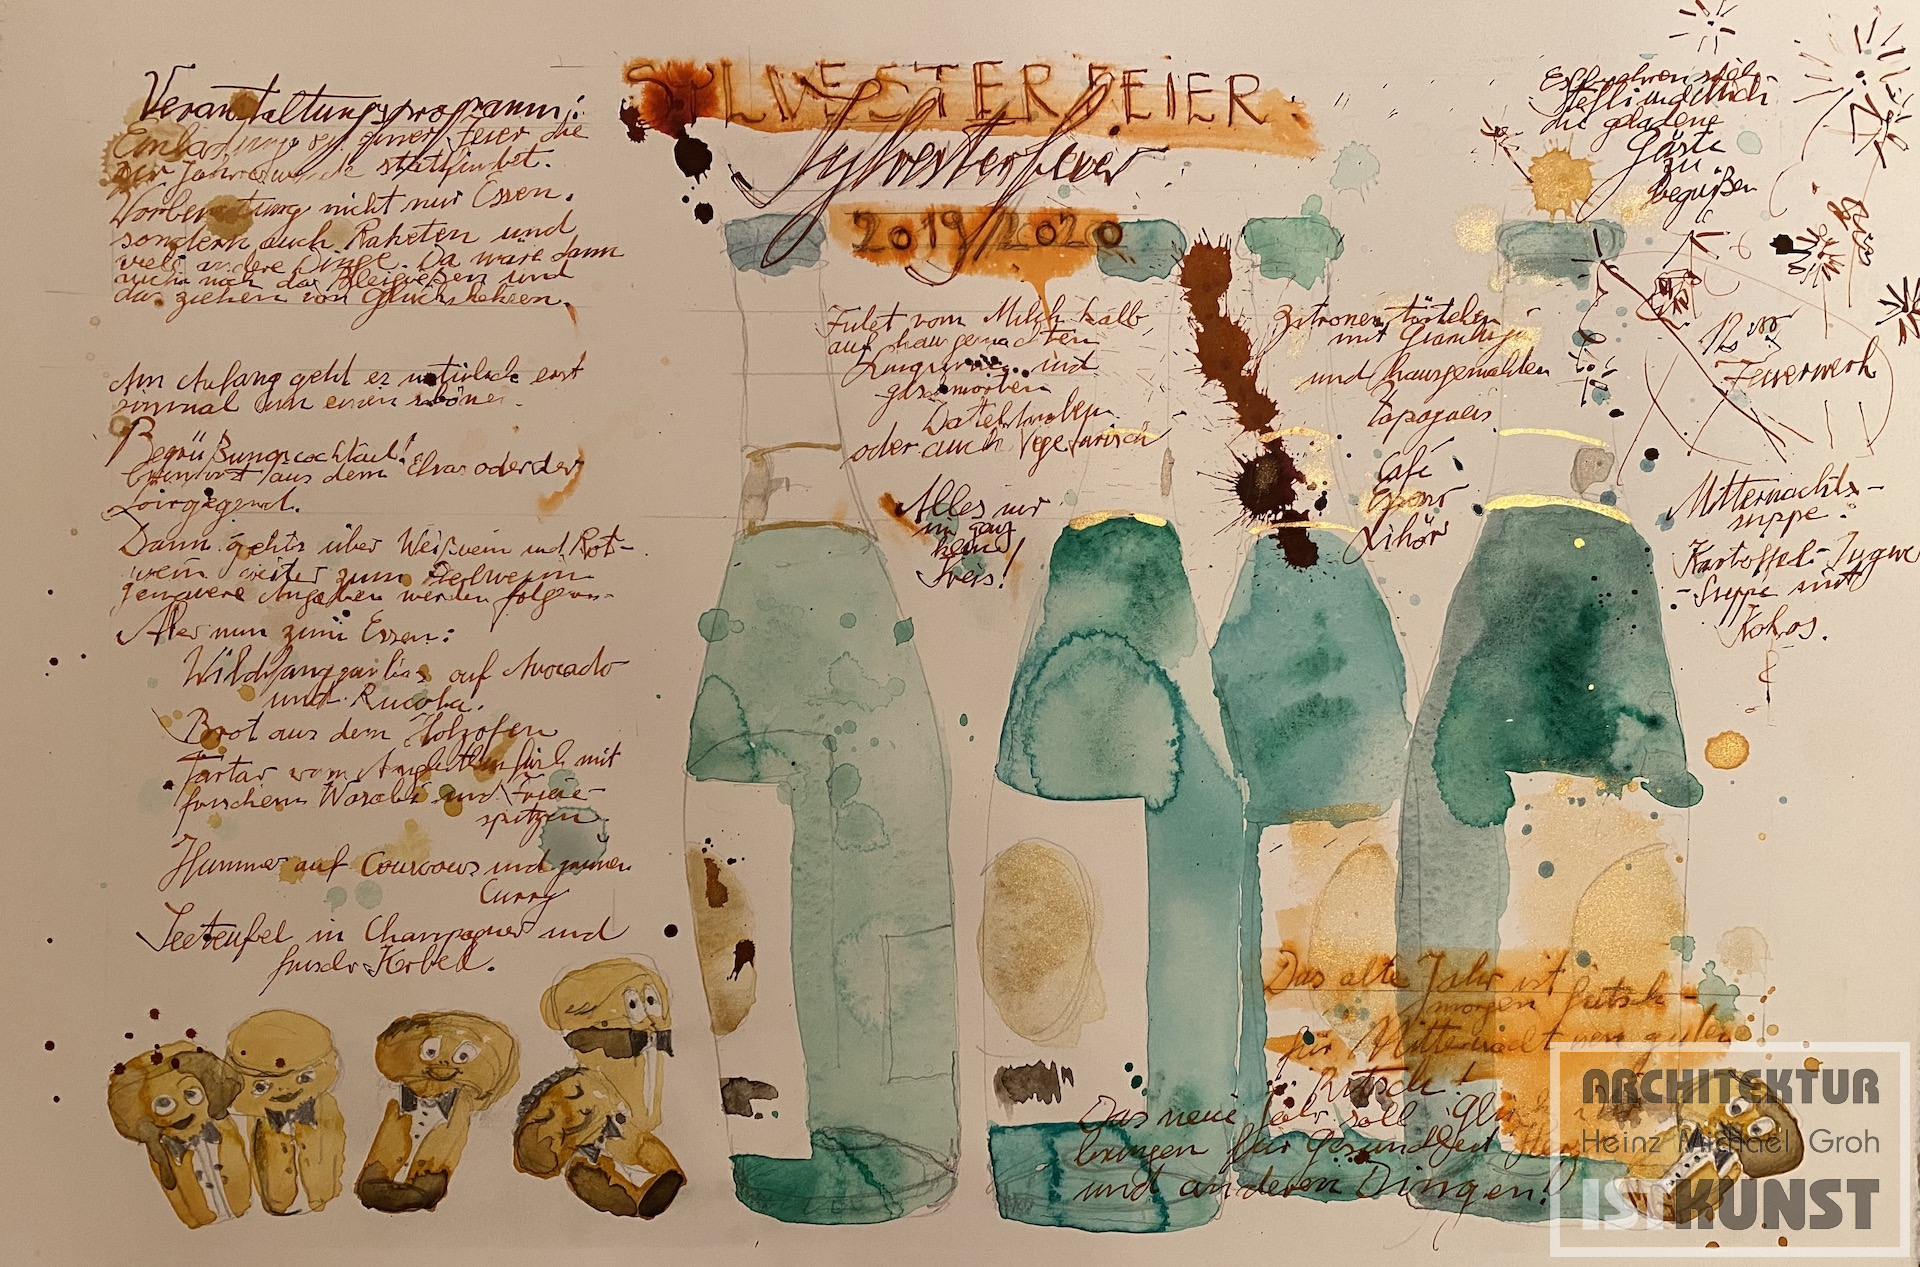 SYLVESTERFEIER:
Sylvesterfeier
2019/2020
Veranstaltungsprogramm:
Einladung zu einer Feier die
zur Jahreswende stattfindet.
Vorbereitung nicht nur Essen.
sondern auch Raketen und
viele andere Dinge. Da wäre dann
auch noch das Bleigießen und
das ziehen von Glückskeksen.
Am Anfang geht es natürlich erst
einmal um einen schönen
Begrüßungscocktail!
aus dem Elsas oder der
Loirgegend.
Dann gehts über Weißwein und Rot-
wein weiter zum Edelwein
genauere Angaben werden folgen
Aber nun zum Essen:
Wildfanggarnelen auf Avocado
und Rucola.
Brot aus dem Holzofen
Tartar vom mit
frischem Wasabi und
spitzen.
Hummer auf Couscous und
Curry
Seeteufel in Champagner und
frisch Kerbel.
Filet vom Milch kalb
auf hausgemachten
und
oder auch Vegetarisch
Alles nur
im ganz
kleine
Kreis!
Zitronentörtchen
mit
und hausgemachten
Café
Li­kör
die geladene
Gäste
zu
begrüßen
12 Uhr
Feuerwerk
Mitternachts-
suppe:
Kartoffel-Ingwer
-Suppe mit
Kokos.
Das alte Jahr ist
morgen futsch-
für Mitternacht nen guten
Rutsch!
Das neue Jahr soll Glück
bringen für Gesundheit
und anderen Dingen!
ARCHITEKTUR
Heinz Michael Groh
IST KUNST